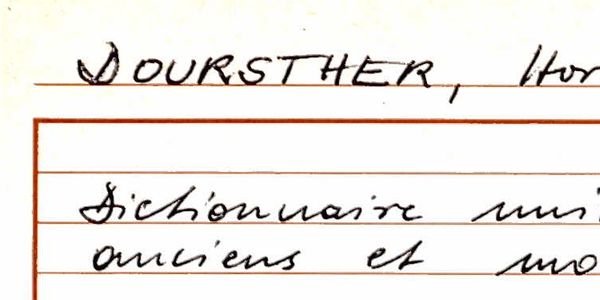 DOURSTHER, Hor
Dictionnaire uni
anciens et mo